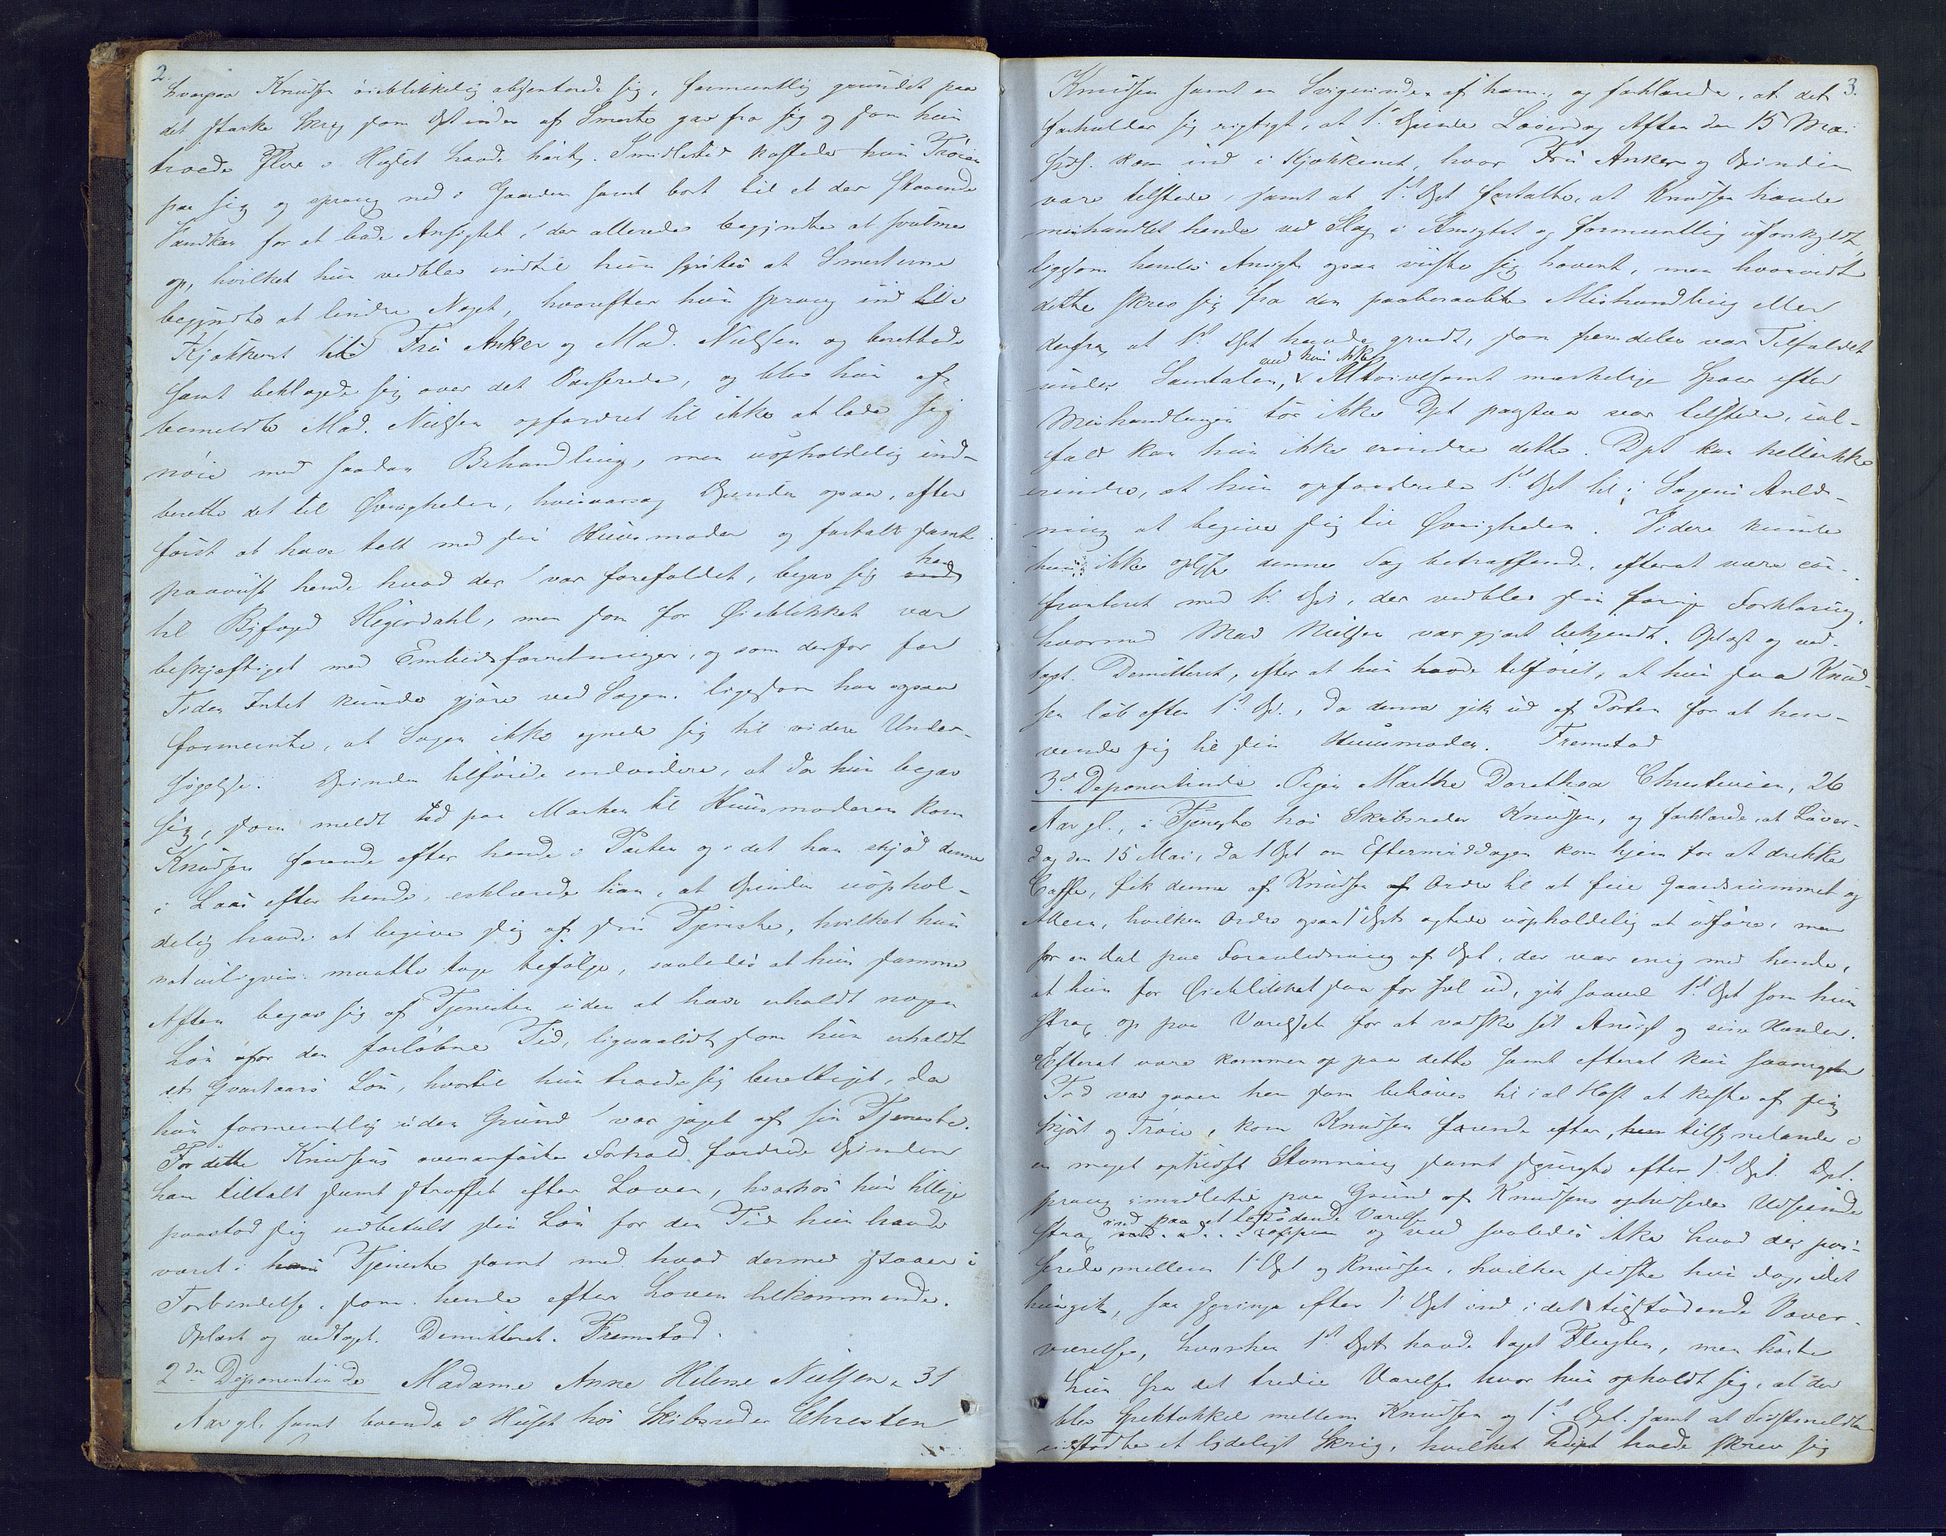 2.
hvorpaa Knudsen øieblikkelig absenterede sig, formeentlig grundet paa
det stærke Skrig som Qvinden af Smerte gav fra sig og som hun
troede Flere i Huset havde hørt. Imidlertid kastede hun Trøien
paa sig og sprang ned i Gaarden samt bort til et der staaende
Vandkar for at bade Ansigtet, der allerede begyndte at svulme
op, hvilket hun vedblev indtil hun syntes at Smerterne
begyndte at lindre Noget, hvorefter hun sprang ind i
Kjøkkenet til Fru Anker og Mad. Nielsen og berettede
samt beklagede sig over det Passerede, og blev hun af
bemeldte Mad. Nielsen opfordret til ikke at lade sig
nøie med saadan Behandling, men uopholdelig ind-
berette det til Øvrigheden, hvisaarsag Qvinden ogsaa, efter
først at have talt med sin Huusmoder og fortalt samt
paaviist hende hvad der var forefaldet, begav sig hen
til Byfoged Hegerdahl, men som for Øieblikket var
beskjæftiget med Embedsforretninger, og som derfor for
Tiden Intet kunde gjøre ved Sagen, ligesom han ogsaa
formeente, at Sagen ikke egnede sig til videre Under-
søgelse. Qvinden tilføiede endvidere, at da hun begav
sig, som meldt ud paa Marken til Huusmoderen kom
Knudsen farende efter hende i Porten og i det han skjød denne
i Laas efter hende, erklærede han, at Qvinden uophol-
delig havde at begive sig af sin Tjeneste, hvilket hun
naturligviis maatte tage tilfølge, saaledes at hun samme
Aften begav sig af Tjenesten uden at have erholdt nogen
Løn for den forløbne Tid, ligesaalidt som hun erholdt
et Qvartaars Løn, hvortil hun troede sig berettiget, da
hun formeentlig uden Grund var jaget af sin Tjeneste.
For dette Knudsens ovenanførte Forhold fordrede Qvinden
ham tiltalt samt straffet efter Loven, hvorhos hun tillige
paastod sig udbetalt sin Løn for den Tid hun havde
været i hans Tjeneste samt med hvad dermed staaer i
Forbindelse, som hende efter Loven tilkommende.
Oplæst og vedtaget. Demitteret. Fremstod.
2den Deponentinde Madame Anne Helene Nielsen, 31
Aar gl. samt boende i Huset hos Skibsreder Christen
3.
Knudsen samt en Svigerinde af ham, og forklarede, at det
forholder sig rigtigt, at 1. Qvinde Løverdag Aften den 15 Mai
sidst. kom ind i Kjøkkenet, hvor Fru Anker og Qvinden
vare tilstede, samt at 1st Dpt fortalte, at Knudsen havde
mishandlet hende ved Slag i Ansigtet og formeentlig uforskyldt,
ligesom hendes Ansigt ogsaa viiste sig hovent, men hvorvidt
dette skrev sig fra den paaberaabte Mishandling eller
derfra at 1st Dpt havde grædt, som fremdeles var Tilfældet
under Samtalen, ved hun ikke. Altsaa særligt mærkelige Spor efter
Mishandlingen tør ikke Dpt paastaa var tilstede, ial-
fald kan hun ikke erindre dette. Dpt kan heller ikke
erindre, at hun opfordrede 1st Dpt til i Sagens Anled-
ning at begive sig til Øvrigheden. Videre kunde
hun ikke oplyse denne Sag betræffende, efterat være con-
fronteret med 1st Dpt, der vedblev sin forrige Forklaring,
hvormed Mad Nielsen var gjort bekjendt. Oplæst og ved-
taget. Demitteret, efter at hun havde tilføiet, at hun saa Knud-
sen løb efter 1st D., da denne gik ud af Porten for at hen-
vende sig til sin Huusmoder. Fremstod
3d Deponentinde Pigen Marthe Dorothea Christensen, 26
Aar gl., i Tjeneste hos Skibsreder Knudsen, og forklarede, at Løver-
dag den 15 Mai, da 1 Dpt om Eftermiddagen kom hjem for at drikke
Caffe, fik denne af Knudsen Ordre til at feie Gaardsrummet og
Alleen, hvilken Ordre ogsaa 1 Dpt agtede uopholdelig at udføre, men
for en deel paa Foranledning af Dpt, der var enig med hende,
at hun for Øieblikket saa for fæl ud, gik saavel 1st Dpt som hun
strax op paa Værelset for at vadske sit Ansigt og sine Hænder.
Efterat være kommen op paa dette samt efterat kun saamegen
Tid var gaaen hen som behøves til i al Hast at kaste af sig
Skjørt og Trøie, kom Knudsen farende efter, tilsynelatende i
en meget ophidset Stemning samt spurgte efter 1st Dpt. Dpt.
sprang imidlertid paa Grund af Knudsens ophidsede Udseende
strax ind paa et tilstødende Værelse og ved saaledes ikke hvad der pas-
serede mellem 1 Dpt og Knudsen, hvilken sidste hun dog, i det
hun gik, saa springe efter 1 Dpt ind i det tilstødende Væver-
værelse, hvorhen 1st Dpt havde taget Flugten, men hørte
hun fra det tredie Værelse hvor hun opholdt sig, at der
blev Spektakkel mellem Knudsen og 1st Dpt. samt at Sidstmeldte
udstødte et lydeligt Skrig, hvilket Dpt troede skrev sig